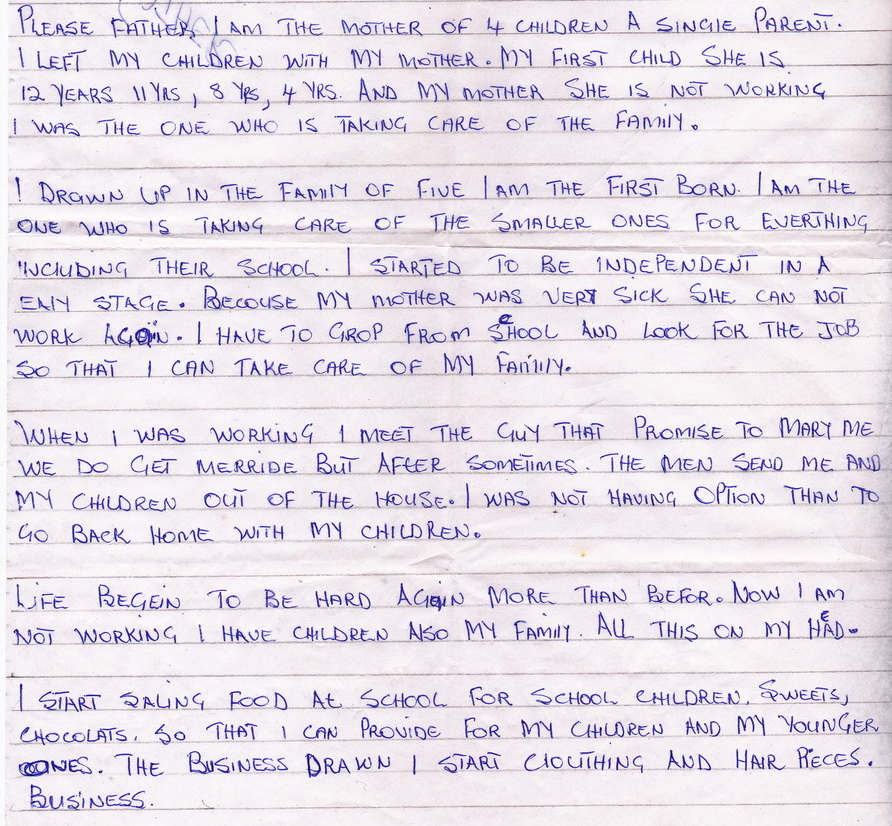 PLEASE FATHER, I AM THE MOTHER OF 4 CHILDREN A SINGIE PARENT.
I LEFT MY CHILDREN WITH MY MOTHER. MY FIRST CHILD SHE IS
12 YEARS 11 YRS, 8 YRS, 4 YRS. AND MY MOTHER SHE IS NOT WORKING
I WAS THE ONE WHO IS TAKING CARE OF THE FAMILY.
I DRAWN UP IN THE FAMILY OF FIVE I AM THE FIRST BORN. I AM THE
ONE WHO IS TAKING CARE OF THE SMALLER ONES FOR EVERTHING
INCIUDING THEIR SCHOOL. I STARTED TO BE INDEPENDENT IN A
EAIY STAGE. BECOUSE MY MOTHER WAS VERY SICK SHE CAN NOT
WORK AGAIN. I HAVE TO GROP FROM SCHOOL AND LOOK FOR THE JOB
SO THAT I CAN TAKE CARE OF MY FAMILY.
WHEN I WAS WORKING I MEET THE GUY THAT PROMISE TO MARY ME
WE DO GET MERRIDE BUT AFTER SOMETIMES. THE MEN SEND ME AND
MY CHILDREN OUT OF THE HOUSE. I WAS NOT HAVING OPTION THAN TO
GO BACK HOME WITH MY CHILDREN.
LIFE BEGEIN TO BE HARD AGAIN MORE THAN BEFOR. NOW I AM
NOT WORKING I HAVE CHILDREN AISO MY FAMILY. ALL THIS ON MY HEAD.
I START SALING FOOD AT SCHOOL FOR SCHOOL CHILDREN, SWEETS,
CHOCOLATS. SO THAT I CAN PROVIDE FOR MY CHILDREN AND MY YOUNGER
ONES. THE BUSINESS DRAWN I START CIOUTHING AND HAIR PIECES.
BUSINESS.